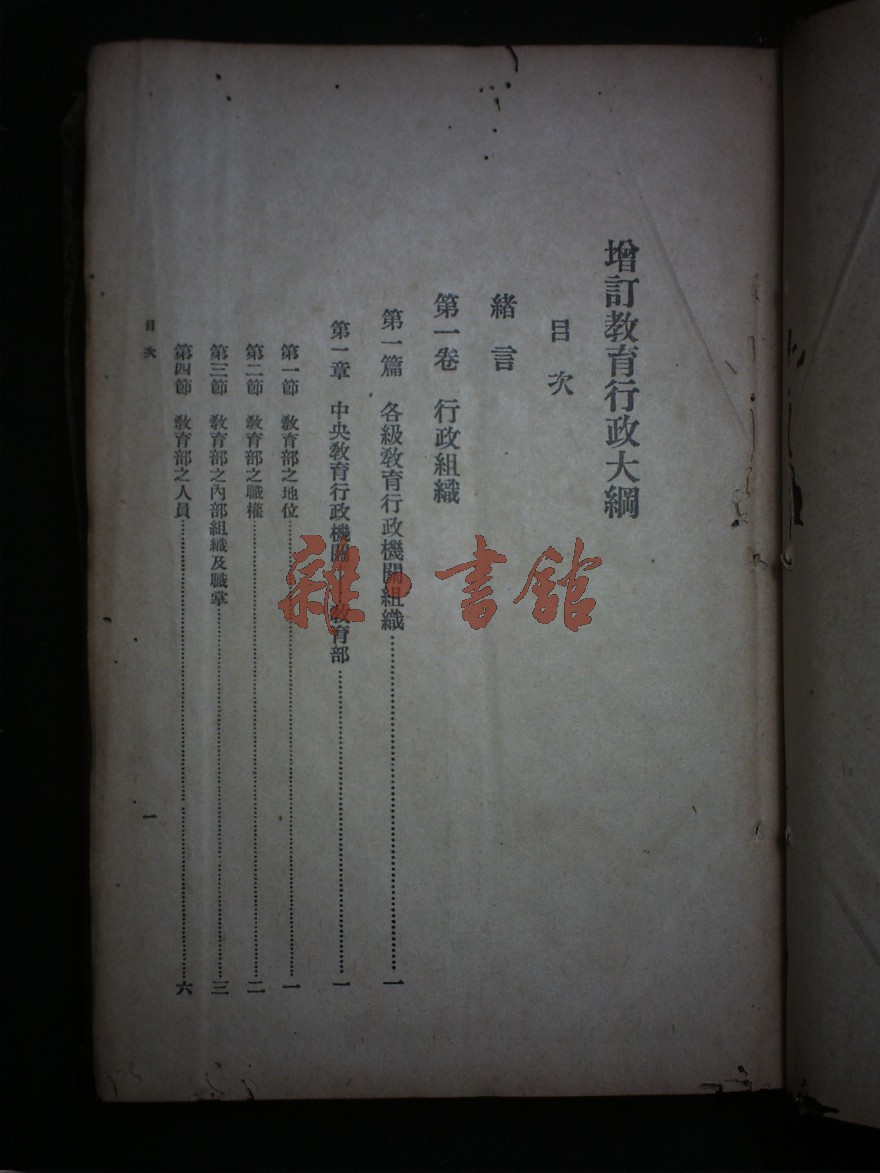 增訂教育行政大綱
目次
緒言
第一卷 行政組織
第一篇 各級教育行政機關組織……一
第一章 中央教育行政機關——教育部……一
第一節 教育部之地位……一
第二節 教育部之職權……二
第三節 教育部之內部組織及職掌……三
第四節 教育部之人員……六
目次
一
雜·書館